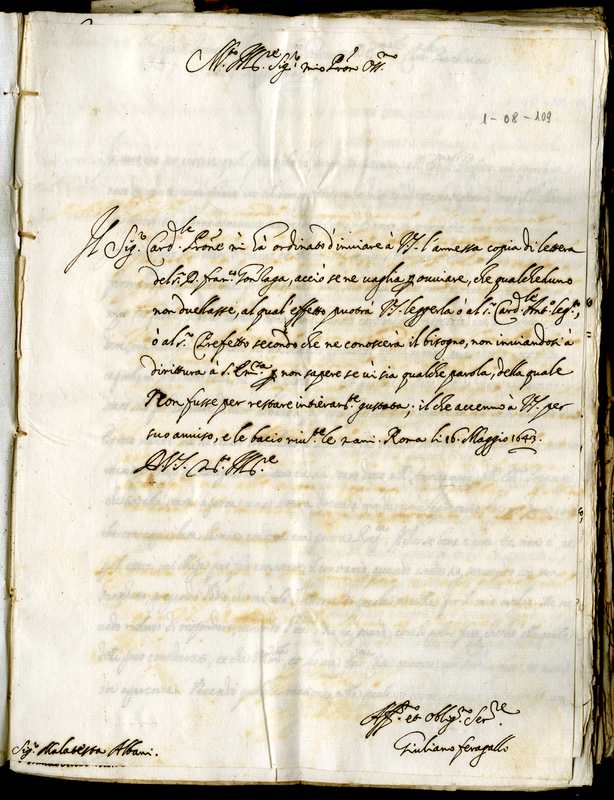 M.to Ill.re Sig.r mio Pron Oss.mo
1-08-109
Il Sig.r Card.le Prone m'hà ordinato d'inviare à V.S. l'annessa copia di lettera
del S.r D. Fran.co Gonzaga, acciò se ne vaglia p ovviare, che qualcheduno
non duellasse, al qual'effetto puotrà V.S. leggerla ò al S.r Card.le Ant.o leg.to,
ò al S.r Prefetto secondo che ne conoscerà il bisogno, non inviandosi à
dirittura à S. Em.za p non sapere se vi sia qualche parola, della quale
Non fusse per restare intieram.te gustata; il che accenno à V.S. per
suo avviso, e le bacio riv.te le mani. Roma li 16. Maggio 1643.
Di V.S. M.to Ill.re
Aff.mo et Oblig.mo Ser.re
Giuliano Feragalli
Sig.r Malatesta Albani.